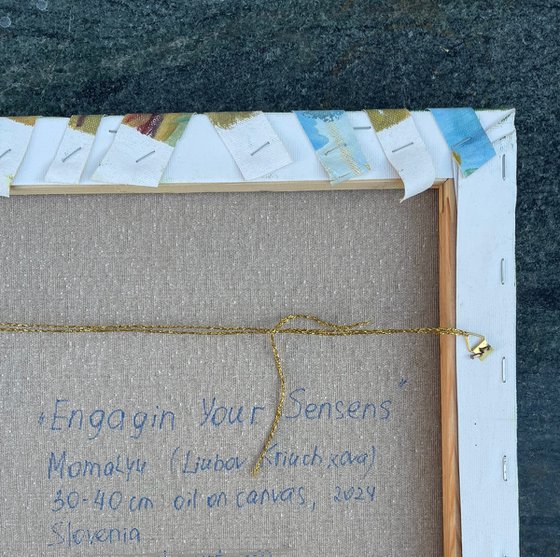 "Engagin Your Sensens"
MomaLyu (Liubov Kriuchkova)
30-40 cm oil on canvas, 2024
Slovenia